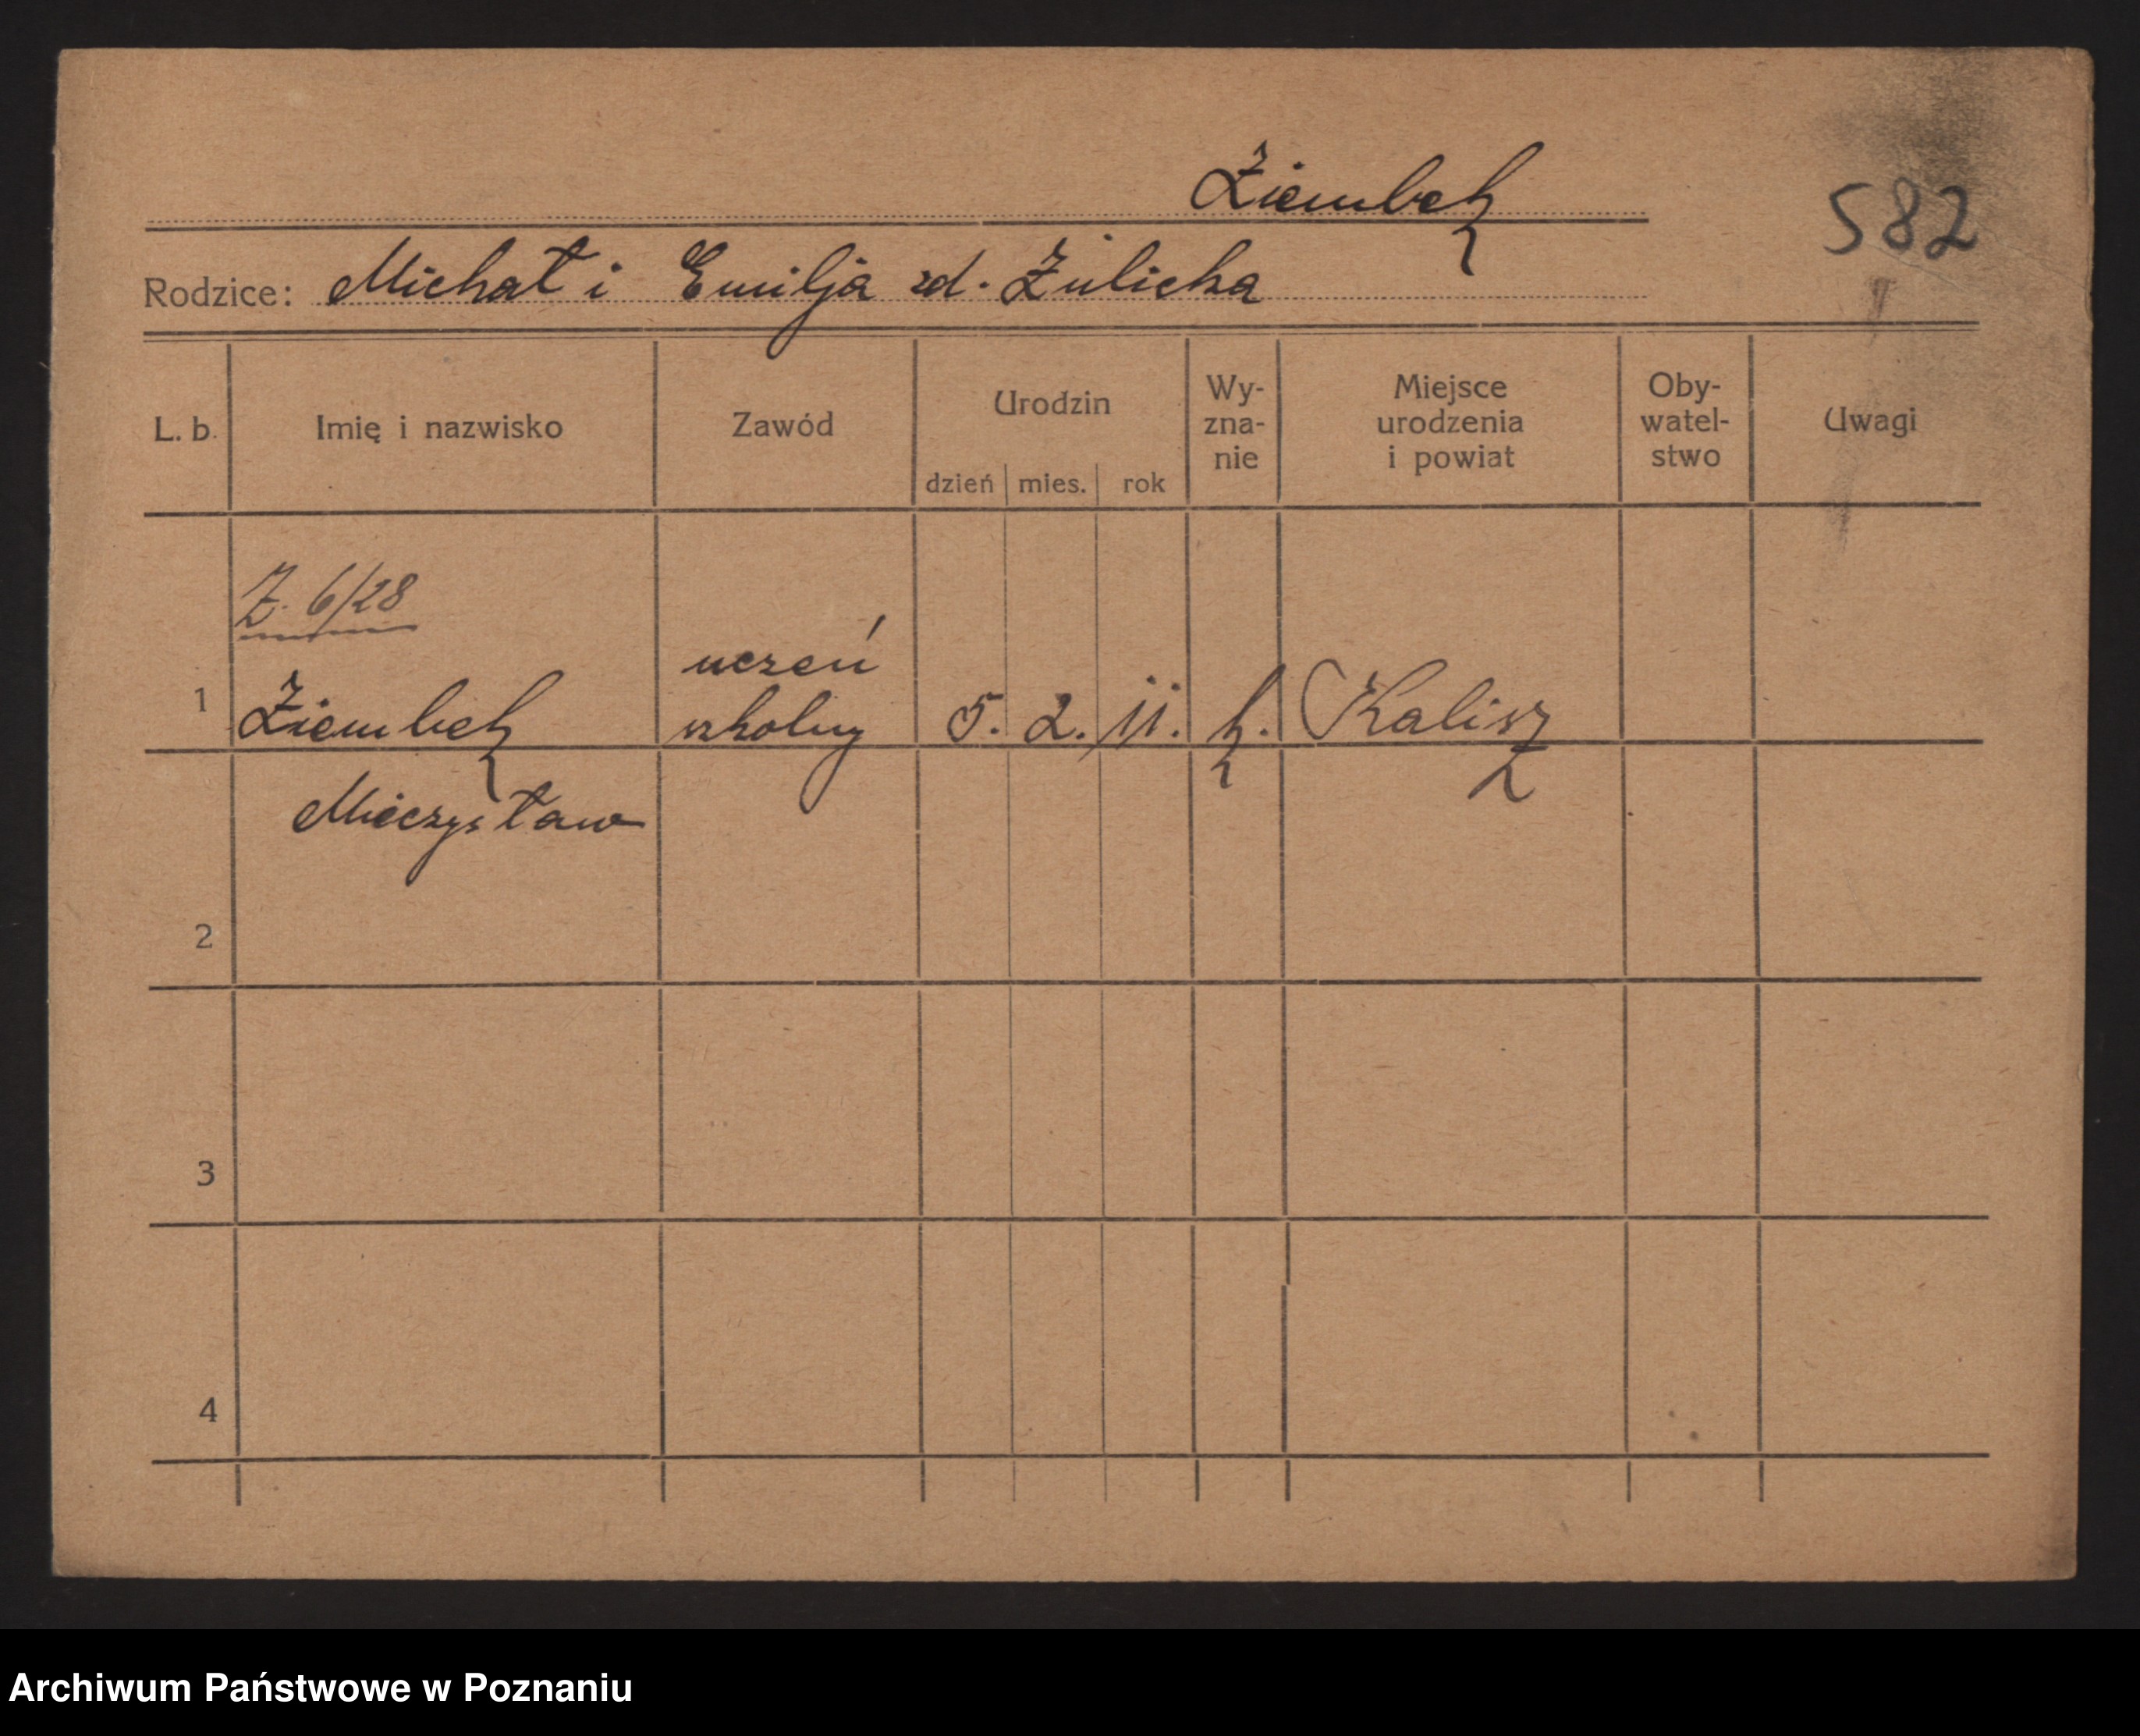 Ziembek
582
Rodzice: Michał i Emilja zd. Żulicka
L. b. Imię i nazwisko Zawód Urodzin dzień mies. rok Wy-zna-nie Miejsce urodzenia i powiat Oby-watel-stwo Uwagi
Z. 6/28
uczeń
1 Ziembek szkolny 5. 2. 11. k. Kalisz
Mieczysław
2
3
4
Archiwum Państwowe w Poznaniu